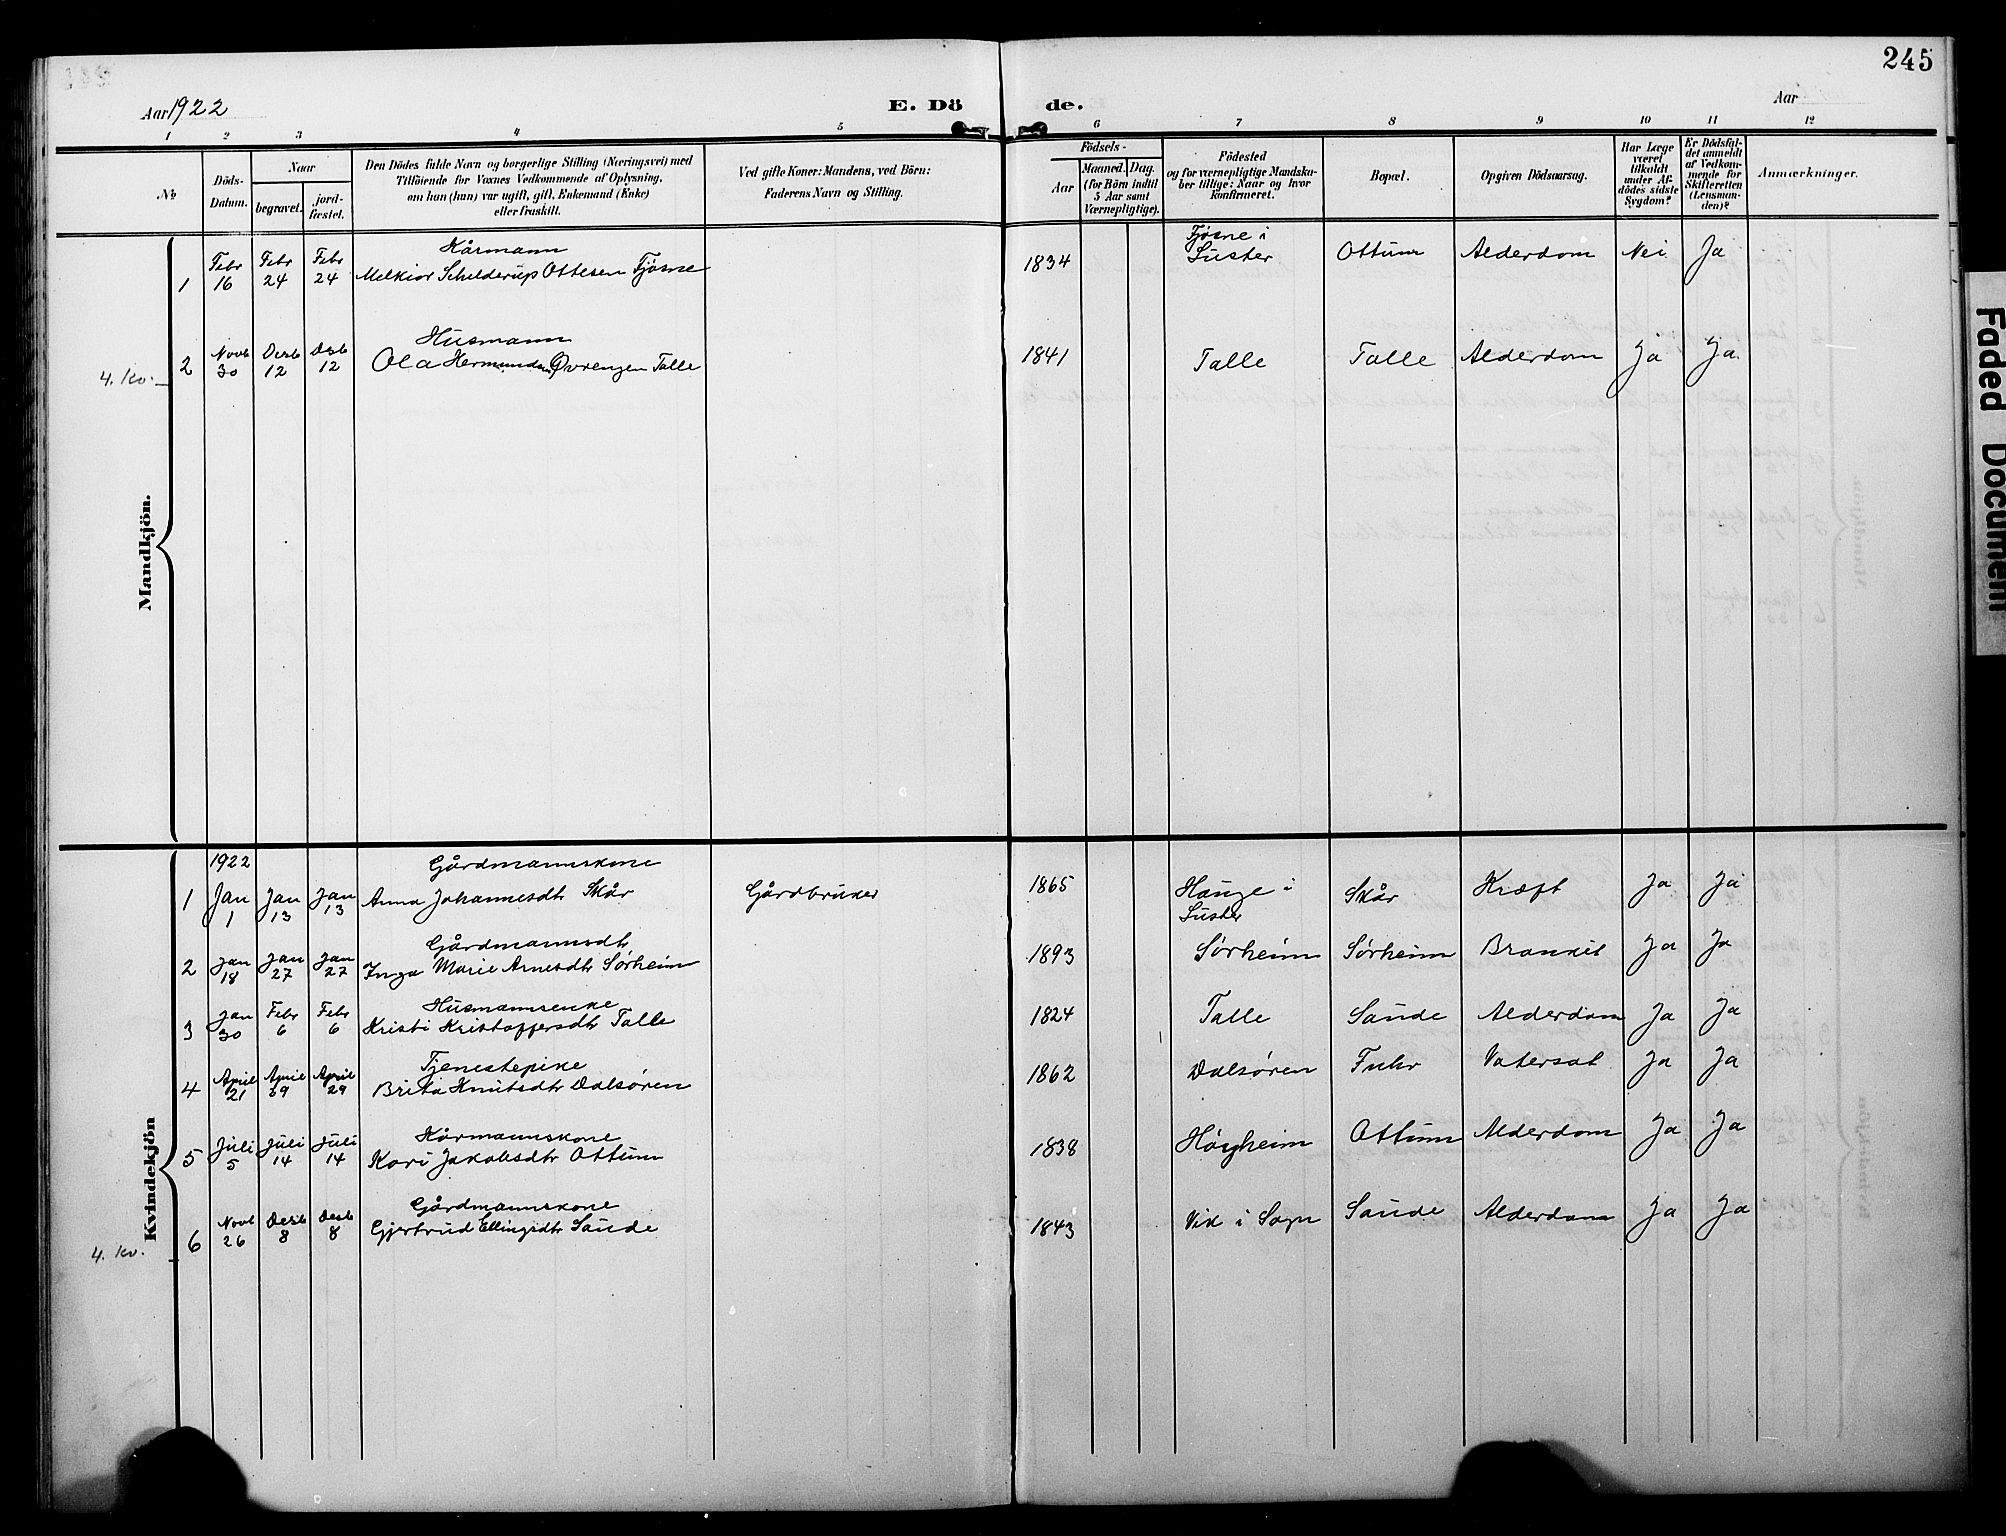 245
Aar 1922
E. Dö
de.
Aar
1 2 3 4 5 6 7 8 9 10 11 12
No
Döds-Datum.
Naar
begravet.
jord-fæstet.
Den Dödes fulde Navn og borgerlige Stilling (Næringsvei) med
Tilföiende for Voxnes Vedkommende af Oplysning,
om han (hun) var ugift, gift, Enkemand (Enke)
eller fraskilt.
Ved gifte Koner: Mandens, ved Börn:
Faderens Navn og Stilling.
Födsels-
Aar
Maaned. Dag.
(for Börn indtil
5 Aar samt
Værnepligtige).
Födested
og for værnepligtige Mandska-
ber tillige: Naar og hvor
konfirmeret.
Bopæl.
Opgiven Dödsaarsag.
Har Læge
været
tilkaldt
under Af-
dödes sidste
Sygdom?
Er Dödsfal-
det anmeldt
af Vedkom-
mende for
Skifteretten
(Lensman-
den)?
Anmærkninger.
Mandkjön.
Kårmann
1 Febr 16 Febr 24 Febr 24 Melkior Schelderup Ottesen Fjøsne 1834 Fjøsne i Luster Ottum Alderdom Nei Ja
Husmann
4. Kv. 2 Novb 30 Desb 12 Desb 12 Ola Hermundsen Øvrengen Talle 1841 Talle Talle Alderdom Ja Ja
Kvindekjön
1922
Gårdmannskone
1 Jan 1 Jan 13 Jan 13 Anna Johannesdtr Skår Gårdbruker 1865 Hauge i Luster Skår Kræft Ja Ja
Gårdmannsdtr
2 Jan 18 Jan 27 Jan 27 Inga Marie Arnesdtr Sørheim 1893 Sørheim Sørheim Bronkit Ja Ja
Husmannsenke
3 Jan 30 Febr 6 Febr 6 Kristi Kristoffersdtr Talle 1824 Talle Saude Alderdom Ja Ja
Tjenestepike
4 April 21 April 29 April 29 Brita Knutsdtr Dalsøren 1862 Dalsøren Fuhr Vatersot Ja Ja
Kårmannskone
5 Juli 5 Juli 14 Juli 14 Kari Jakobsdtr Ottum 1838 Høyheim Ottum Alderdom Ja Ja
Gårdmannskone
4. Kv. 6 Novb 26 Desb 8 Desb 8 Gjertrud Ellingsdtr Saude 1843 Vik i Sogn Saude Alderdom Ja Ja
Faded Document